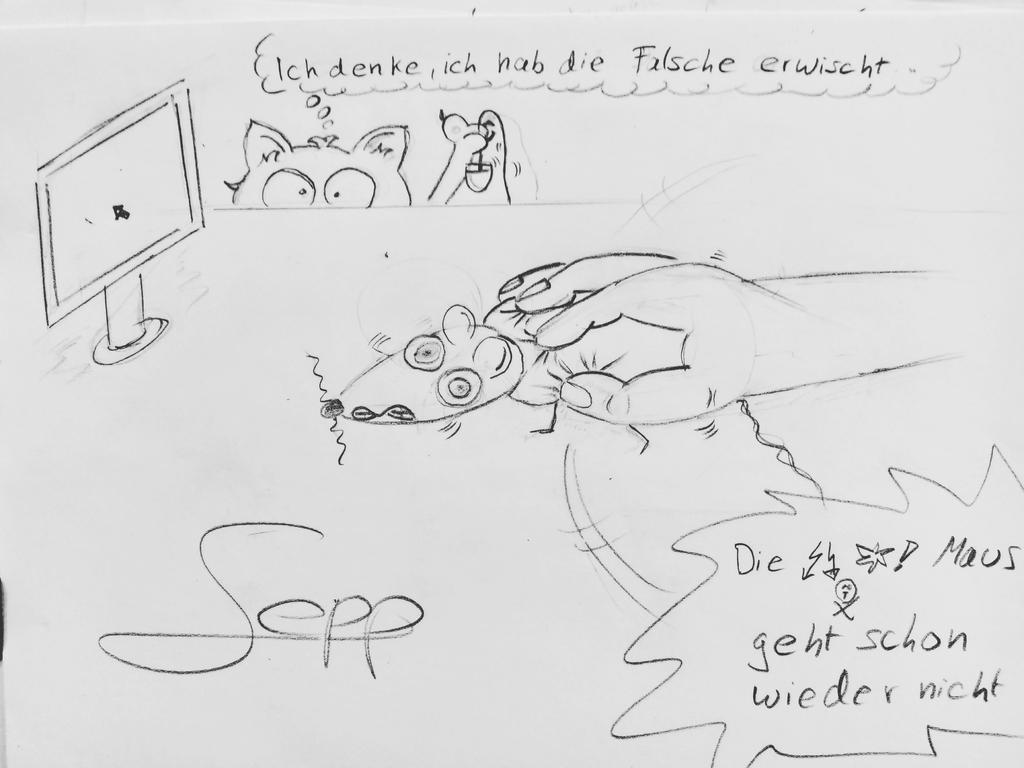 Ich denke, ich hab die Falsche erwischt...
Sepp
Die ! Maus
geht schon
wieder nicht